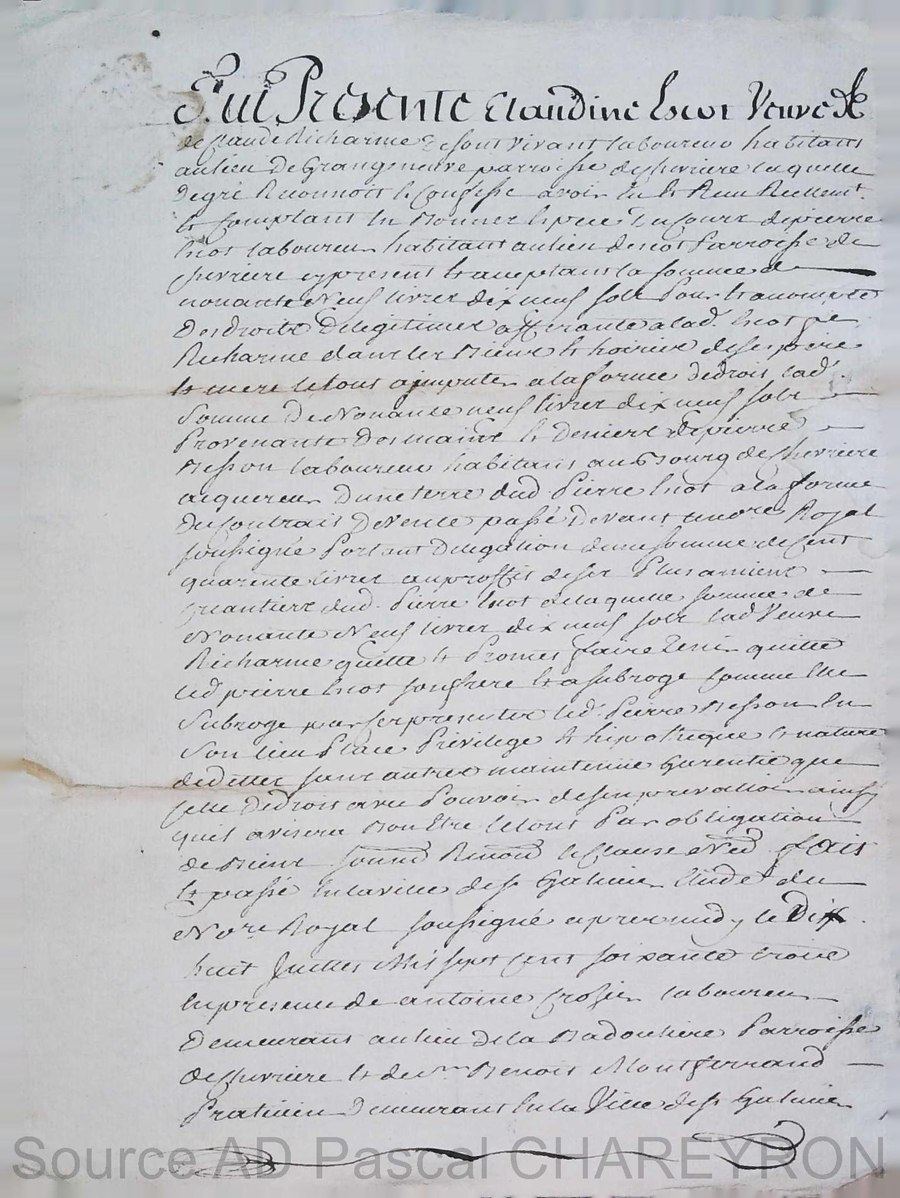 Fut Presente Claudine Escot Veuve de
de Claude Richarme de son vivant laboureur habitant
au lieu de Grangeneuve parroisse de chevriere laquelle
de gré Reconnoit et Confesse avoir eu et Receu Reellement
et Comptant en Bonnes especes du Cours de pierre
Escot laboureur habitant au lieu descot Parroisse de
chevriere cy present et acceptant la somme de
nonante Neuf livres dix neuf sols Pour et a compte
Des droits De legitimes afferants a lad. Escot ve
Richarme dans les Biens et hoiries de ses pere
et mere le tout a imputer a la forme de droit lad.
Somme De Nonante neuf livres dix neuf sols
Provenante Des mains et Deniers de pierre
Besson laboureur habitant au Bourg de chevriere
acquereur D'une terre dud Pierre Escot a la forme
Du Contrait de vente passé devant le nore Royal
soussigné Portant Delegation d'une somme de cent
quarente livres au proffit de ses Plus anciens
creantiers dud. Pierre Escot de laquelle somme de
Nonante Neuf livres dix neuf sols lad Veuve
Richarme quitte et Promet faire tenir quitte
led pierre Escot son frere et a subrogé comme elle
Subroge par ces presentes led. Pierre Besson en
Son lieu Place Privilege et hipotheque et nature
de dettes sans autre maintenue Garentie que
celle de droit avec Pouvoir de s'en prevaloir ainsy
quil avisera Bon Etre le tout Par obligation
de Biens soumd Renond et Clauses Necd fait
et passé en la ville de st Galmier Etude du
Nore Royal soussigné apres midy le Dix
huit Juillet Mil sept cent soixante trois
en presence de antoine crosier laboureur
Demeurant au lieu de la Badouliere Parroisse
de chevriere et de Benoit Montferrand
Praticien Demeurant en la Ville de st Galmier
Source AD Pascal CHAREYRON